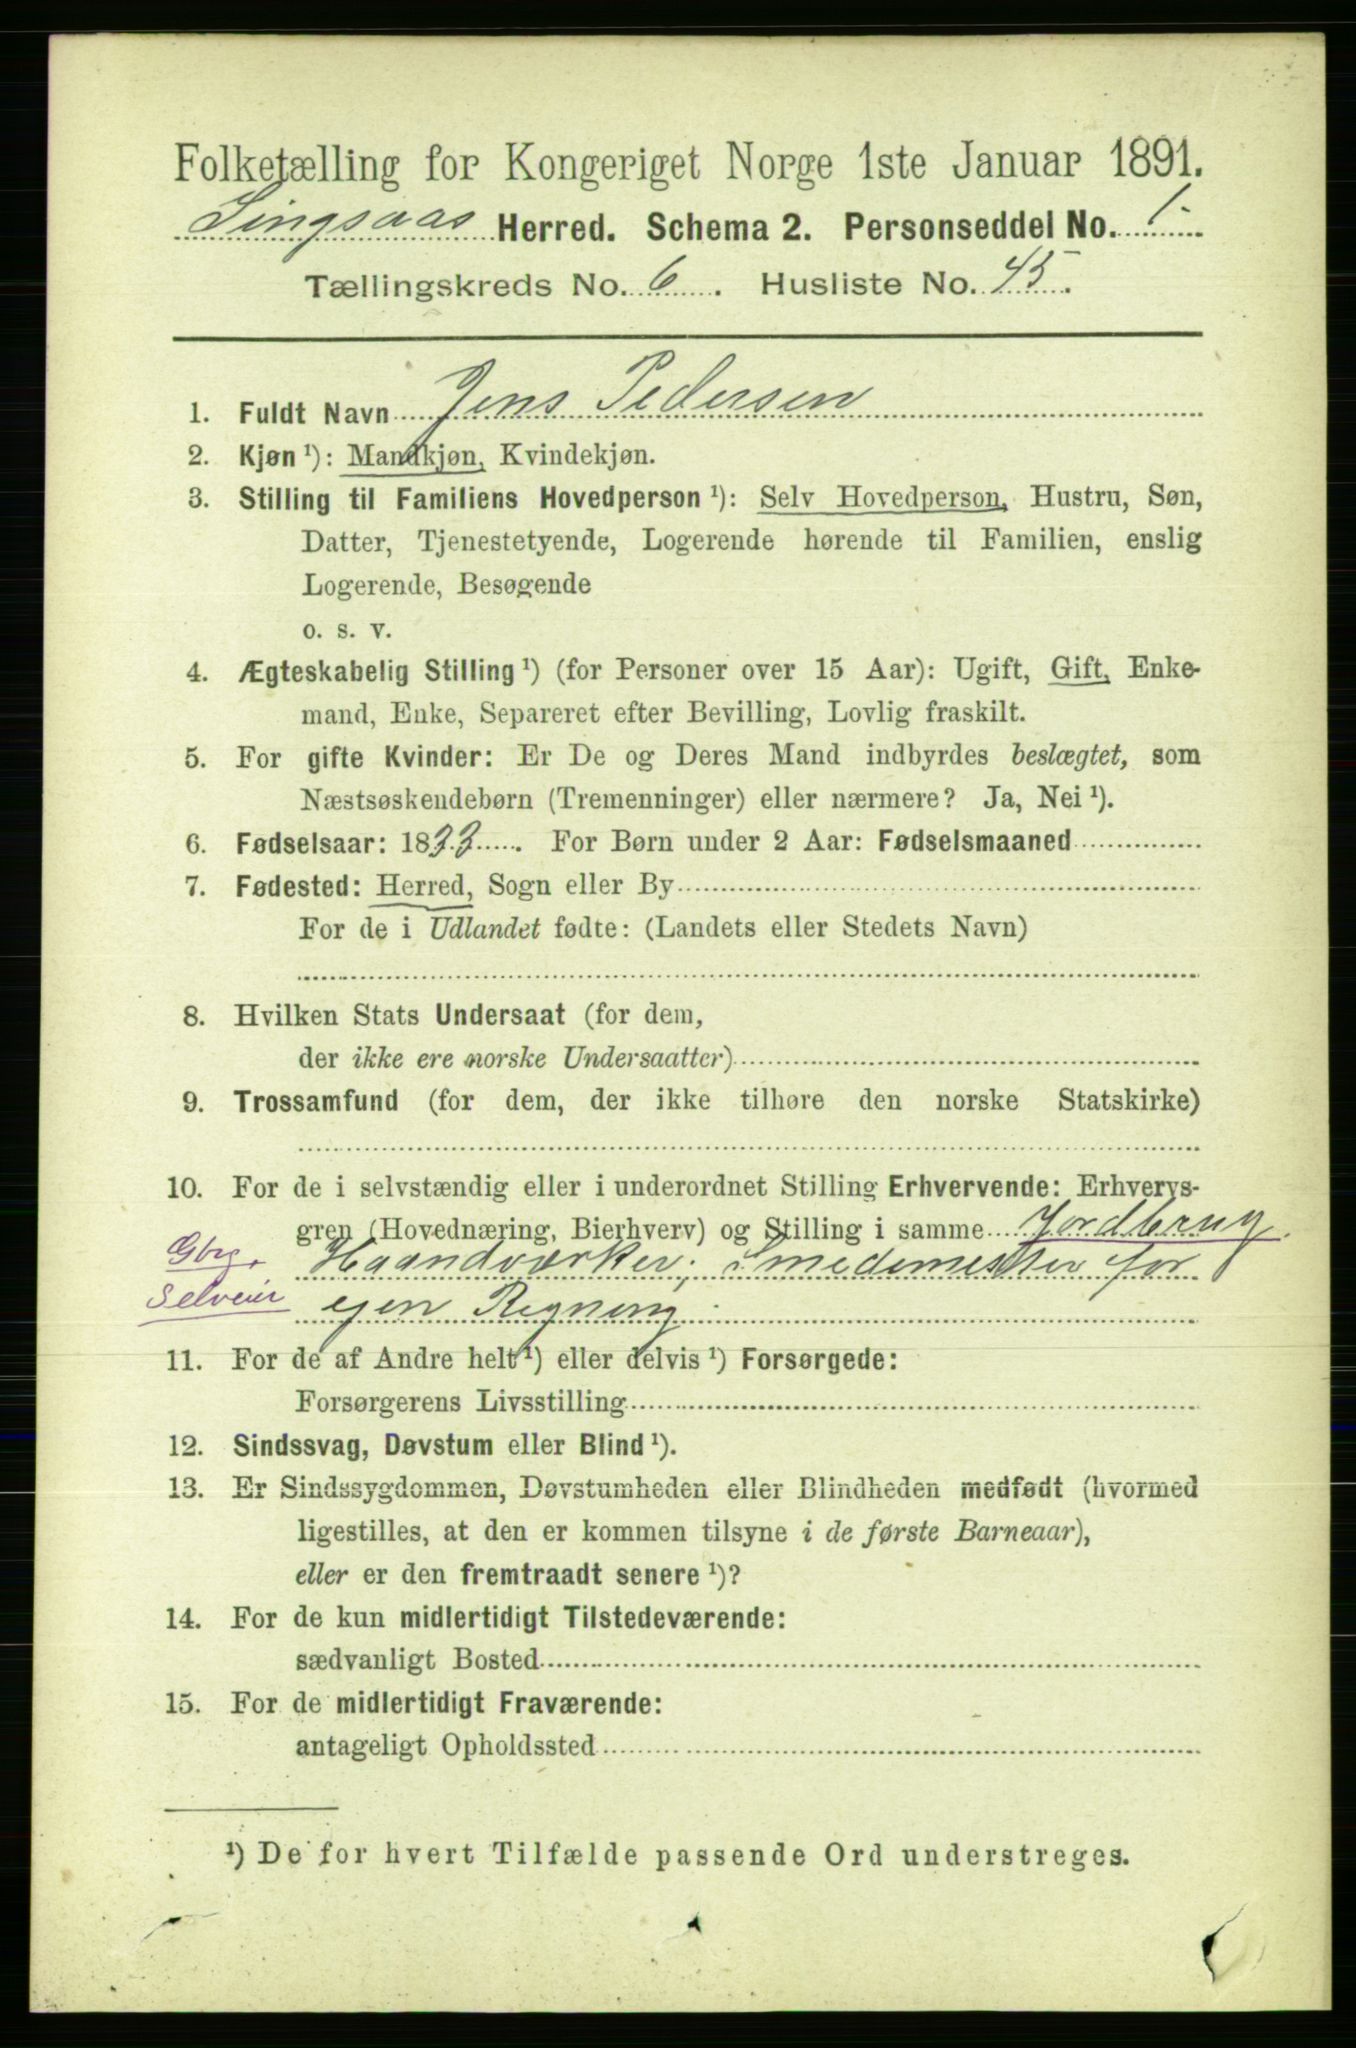 Folketælling for Kongeriget Norge 1ste Januar 1891.
Singsaas Herred. Schema 2. Personseddel No. 1.
Tællingskreds No. 6. Husliste No. 45.
1. Fuldt Navn Jens Pedersen
2. Kjøn ¹): Mandkjøn, Kvindekjøn.
3. Stilling til Familiens Hovedperson ¹): Selv Hovedperson, Hustru, Søn,
Datter, Tjenestetyende, Logerende hørende til Familien, enslig
Logerende, Besøgende
o. s. v.
4. Ægteskabelig Stilling ¹) (for Personer over 15 Aar): Ugift, Gift, Enke-
mand, Enke, Separeret efter Bevilling, Lovlig fraskilt.
5. For gifte Kvinder: Er De og Deres Mand indbyrdes beslægtet, som
Næstsøskendebørn (Tremenninger) eller nærmere? Ja, Nei ¹).
6. Fødselsaar: 1833. For Børn under 2 Aar: Fødselsmaaned
7. Fødested: Herred, Sogn eller By
For de i Udlandet fødte: (Landets eller Stedets Navn)
8. Hvilken Stats Undersaat (for dem,
der ikke ere norske Undersaatter)
9. Trossamfund (for dem, der ikke tilhøre den norske Statskirke)
10. For de i selvstændig eller i underordnet Stilling Erhvervende: Erhvervs-
gren (Hovednæring, Bierhverv) og Stilling i samme Jordbrug.
Gbr. Haandværker; Smedemester for
Selveier egen Regning.
11. For de af Andre helt ¹) eller delvis ¹) Forsørgede:
Forsørgerens Livsstilling
12. Sindssvag, Døvstum eller Blind ¹).
13. Er Sindssygdommen, Døvstumheden eller Blindheden medfødt (hvormed
ligestilles, at den er kommen tilsyne i de første Barneaar),
eller er den fremtraadt senere ¹)?
14. For de kun midlertidigt Tilstedeværende:
sædvanligt Bosted
15. For de midlertidigt Fraværende:
antageligt Opholdssted
¹) De for hvert Tilfælde passende Ord understreges.